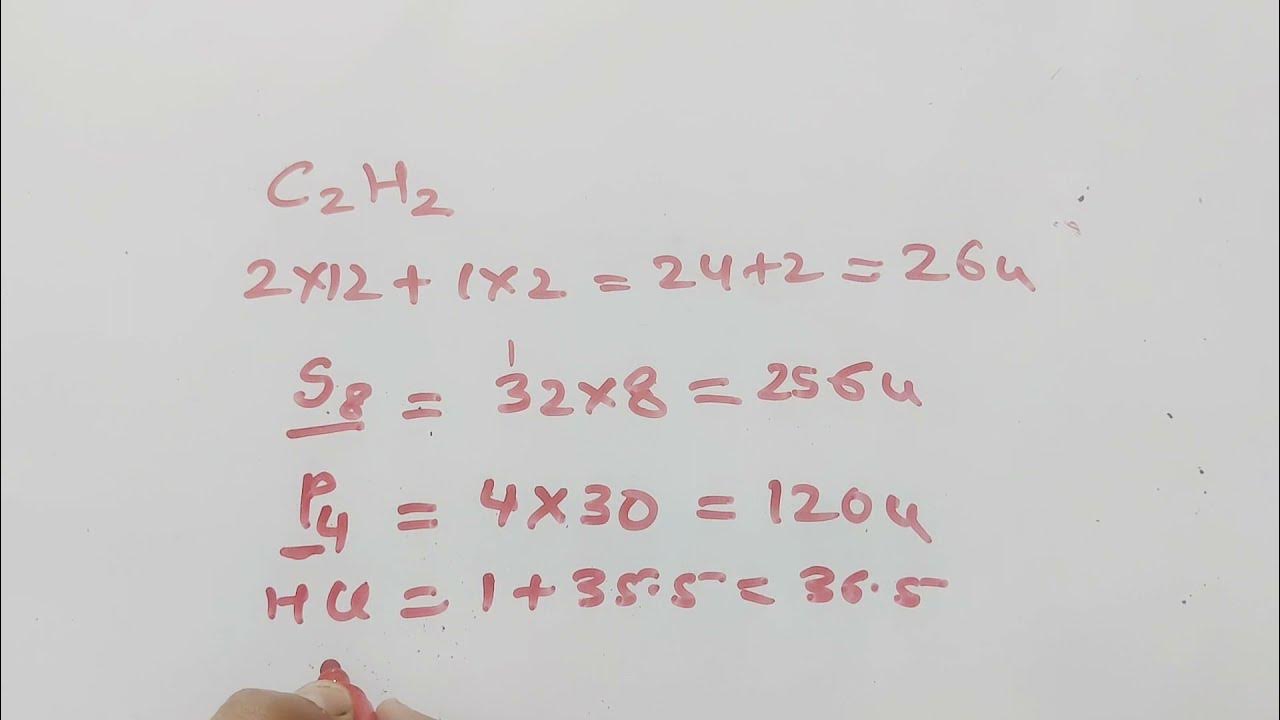 C₂H₂
2×12 + 1×2 = 24+2 = 26u
S₈ = 32×8 = 256u
P₄ = 4×30 = 120u
HCl = 1+35.5 = 36.5